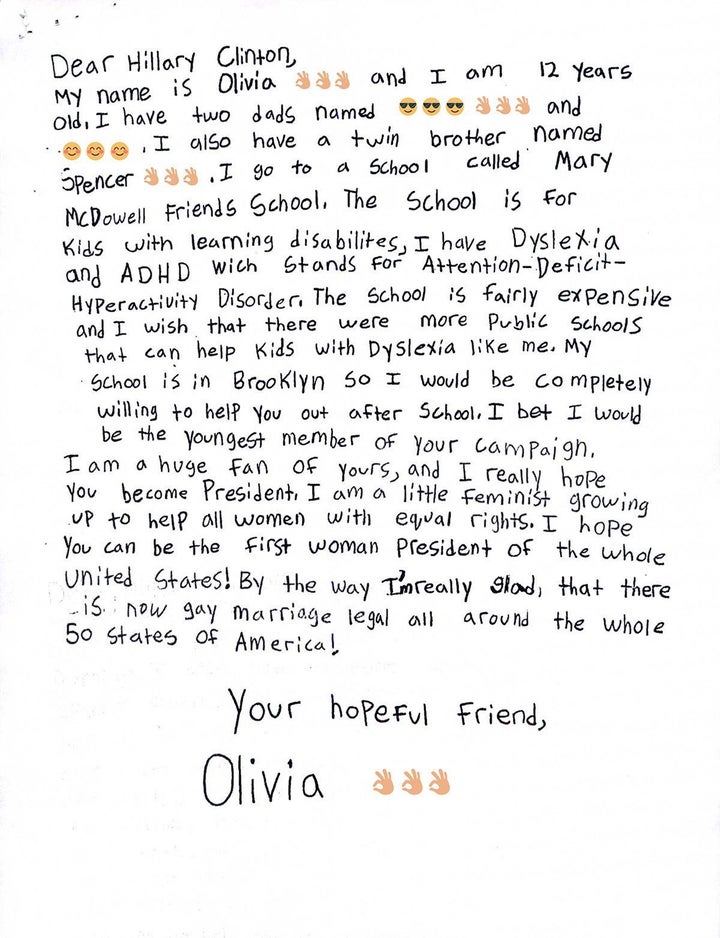 Dear Hillary Clinton,
My name is Olivia 👌👌👌 and I am 12 years
old, I have two dads named 😎😎😎 👌👌👌 and
😊😊😊 , I also have a twin brother named
Spencer 👌👌👌 . I go to a School called Mary
McDowell Friends School. The School is for
Kids with learning disabilites, I have Dyslexia
and ADHD wich Stands for Attention-Deficit-
Hyperactivity Disorder. The School is fairly expensive
and I wish that there were more Public Schools
that can help Kids with Dyslexia like me. My
School is in Brooklyn So I would be completely
willing to help you out after School. I bet I would
be the youngest member of your campaign.
I am a huge fan of yours, and I really hope
You become President. I am a little feminist growing
up to help all women with equal rights. I hope
You can be the first woman President of the whole
United States! By the way I'm really glad, that there
is now gay marriage legal all around the whole
50 States of America!
Your hopeful friend,
Olivia 👌👌👌